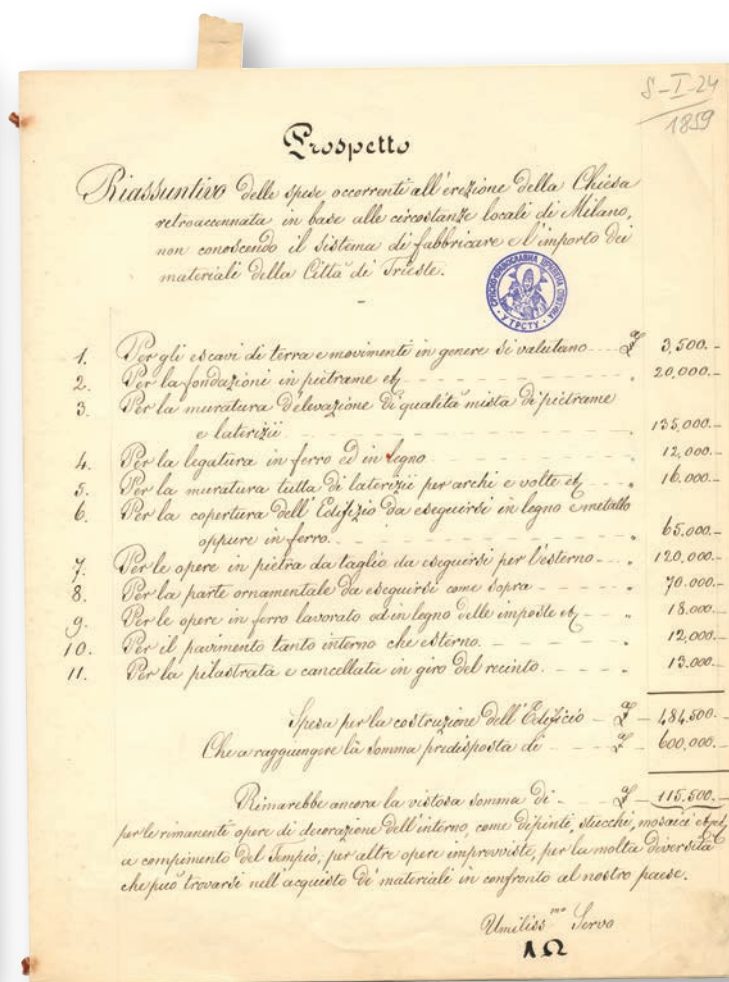 S-I-24
1859
Prospetto
Riassuntivo delle spese occorrenti all'erezione della Chiesa
retroaccennata in base alle circostanze locali di Milano,
non conoscendo il sistema di fabbricare e l'importo dei
materiali della Città di Trieste.
СРПСКО-ПРАВОСЛАВНА ЦРКВЕНА ОПШТИНА
· У ТРСТУ ·
1. Per gli escavi di terra e movimenti in genere si valutano 3,500.-
2. Per la fondazioni in pietrame 20,000.-
3. Per la muratura d'elevazione di qualità mista di pietrame
e laterizii 135,000.-
4. Per la legatura in ferro ed in legno 12,000-
5. Per la muratura tutta di laterizii per archi e volte 16.000-
6. Per la copertura dell'Edifizio da eseguirsi in legno e metallo
oppure in ferro. 65.000-
7. Per le opere in pietra da taglio da eseguirsi per l'esterno 120,000-
8. Per la parte ornamentale da eseguirsi come sopra 70.000.-
9. Per le opere in ferro lavorato od in legno delle imposte 18.000-
10. Per il pavimento tanto interno che esterno. 12,000-
11. Per la pilastrata e cancellata in giro del recinto. 13.000-
Spesa per la costruzione dell'Edificio 484.500.-
Che a raggiungere la somma predisposta di 600,000.-
Rimarebbe ancora la vistosa somma di 115.500.-
per le rimanenti opere di decorazione dell'interno, come dipinti, stucchi, mosaici
a compimento del Tempio, per altre opere improvviste, per la molta diversità
che può trovarsi nell'acquisto di materiali in confronto al nostro paese.
Umiliss.mo Servo
1Ω